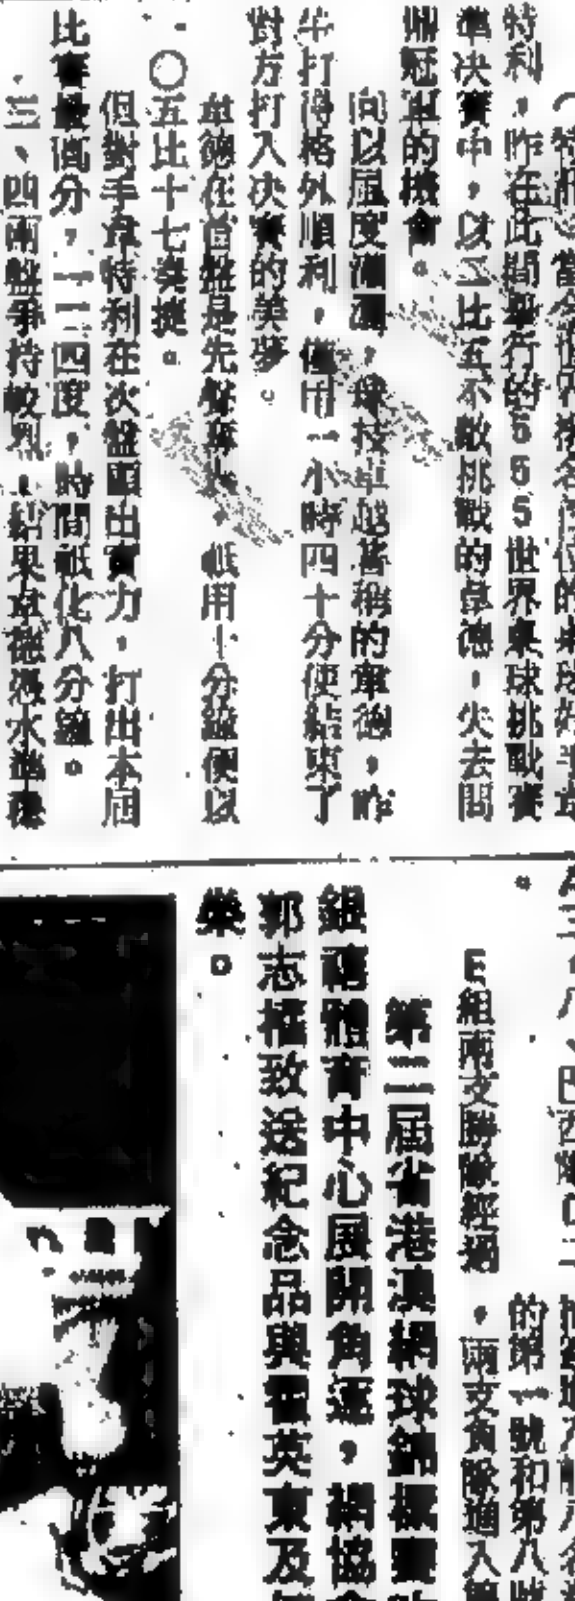 特利，昨在此間舉行的555世界桌球挑戰賽
準決賽中，以二比五不敵挑戰的韋德，失去問
鼎冠軍的機會。
向以風度瀟灑，球技卓越著稱的韋德，昨
午打得格外順利，僅用一小時四十分便結束了
對方打入決賽的美夢。
韋德在首盤是先聲奪人，祇用十分鐘便以
〇五比十七奏捷。
但對手韋特利在次盤顯出實力，打出本屆
比賽最高分，一二四度，時間祇化八分鐘。
三、四兩盤爭持較烈，結果韋德憑水準穩
E組兩支勝隊經過
，兩支負隊進入
的第一號和第八號
第二屆省港澳網球錦標賽
銀禧體育中心展開角逐，網協會
郭志權致送紀念品與霍英東及
樂。